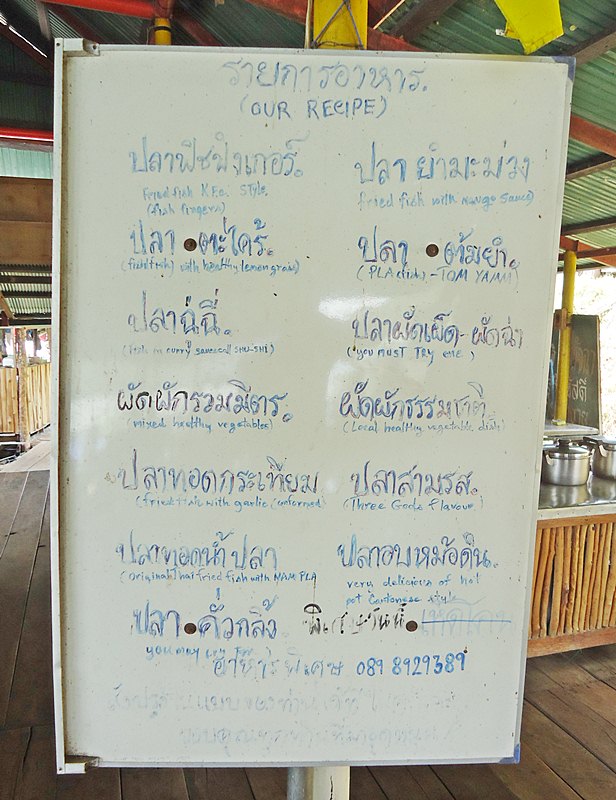 รายการอาหาร.
(OUR RECIPE)
ปลาฟิชฟิงเกอร์.
Fried fish Style
(fish fingers)
ปลา ยำมะม่วง
fried fish with Mango Sauce)
ปลา • ตะไคร้.
with healthy lemon grass)
ปลา • ต้มยำ.
(PLA - TOM YAMM)
ปลาฉู่ฉี่.
curry SHU-SHI)
ปลาผัดเผ็ด-ผัดฉ่า
(you MUST TRY ONE)
ผัดผักรวมมิตร.
(mixed healthy vegetables)
ผัดผักธรรมชาติ.
(Local healthy vegetable dish)
ปลาทอดกระเทียม
(fried fish with garlic
ปลาสามรส.
(Three Gods Flavour)
ปลาทอดน้ำปลา
(original Thai fried fish with NAM PLA
ปลาอบหม้อดิน.
very delicious of hot
pot Cantonese style
ปลา • คั่วกลิ้ง
you may cry
พิเศษวันนี้ •
อาหารพิเศษ 089 8929389